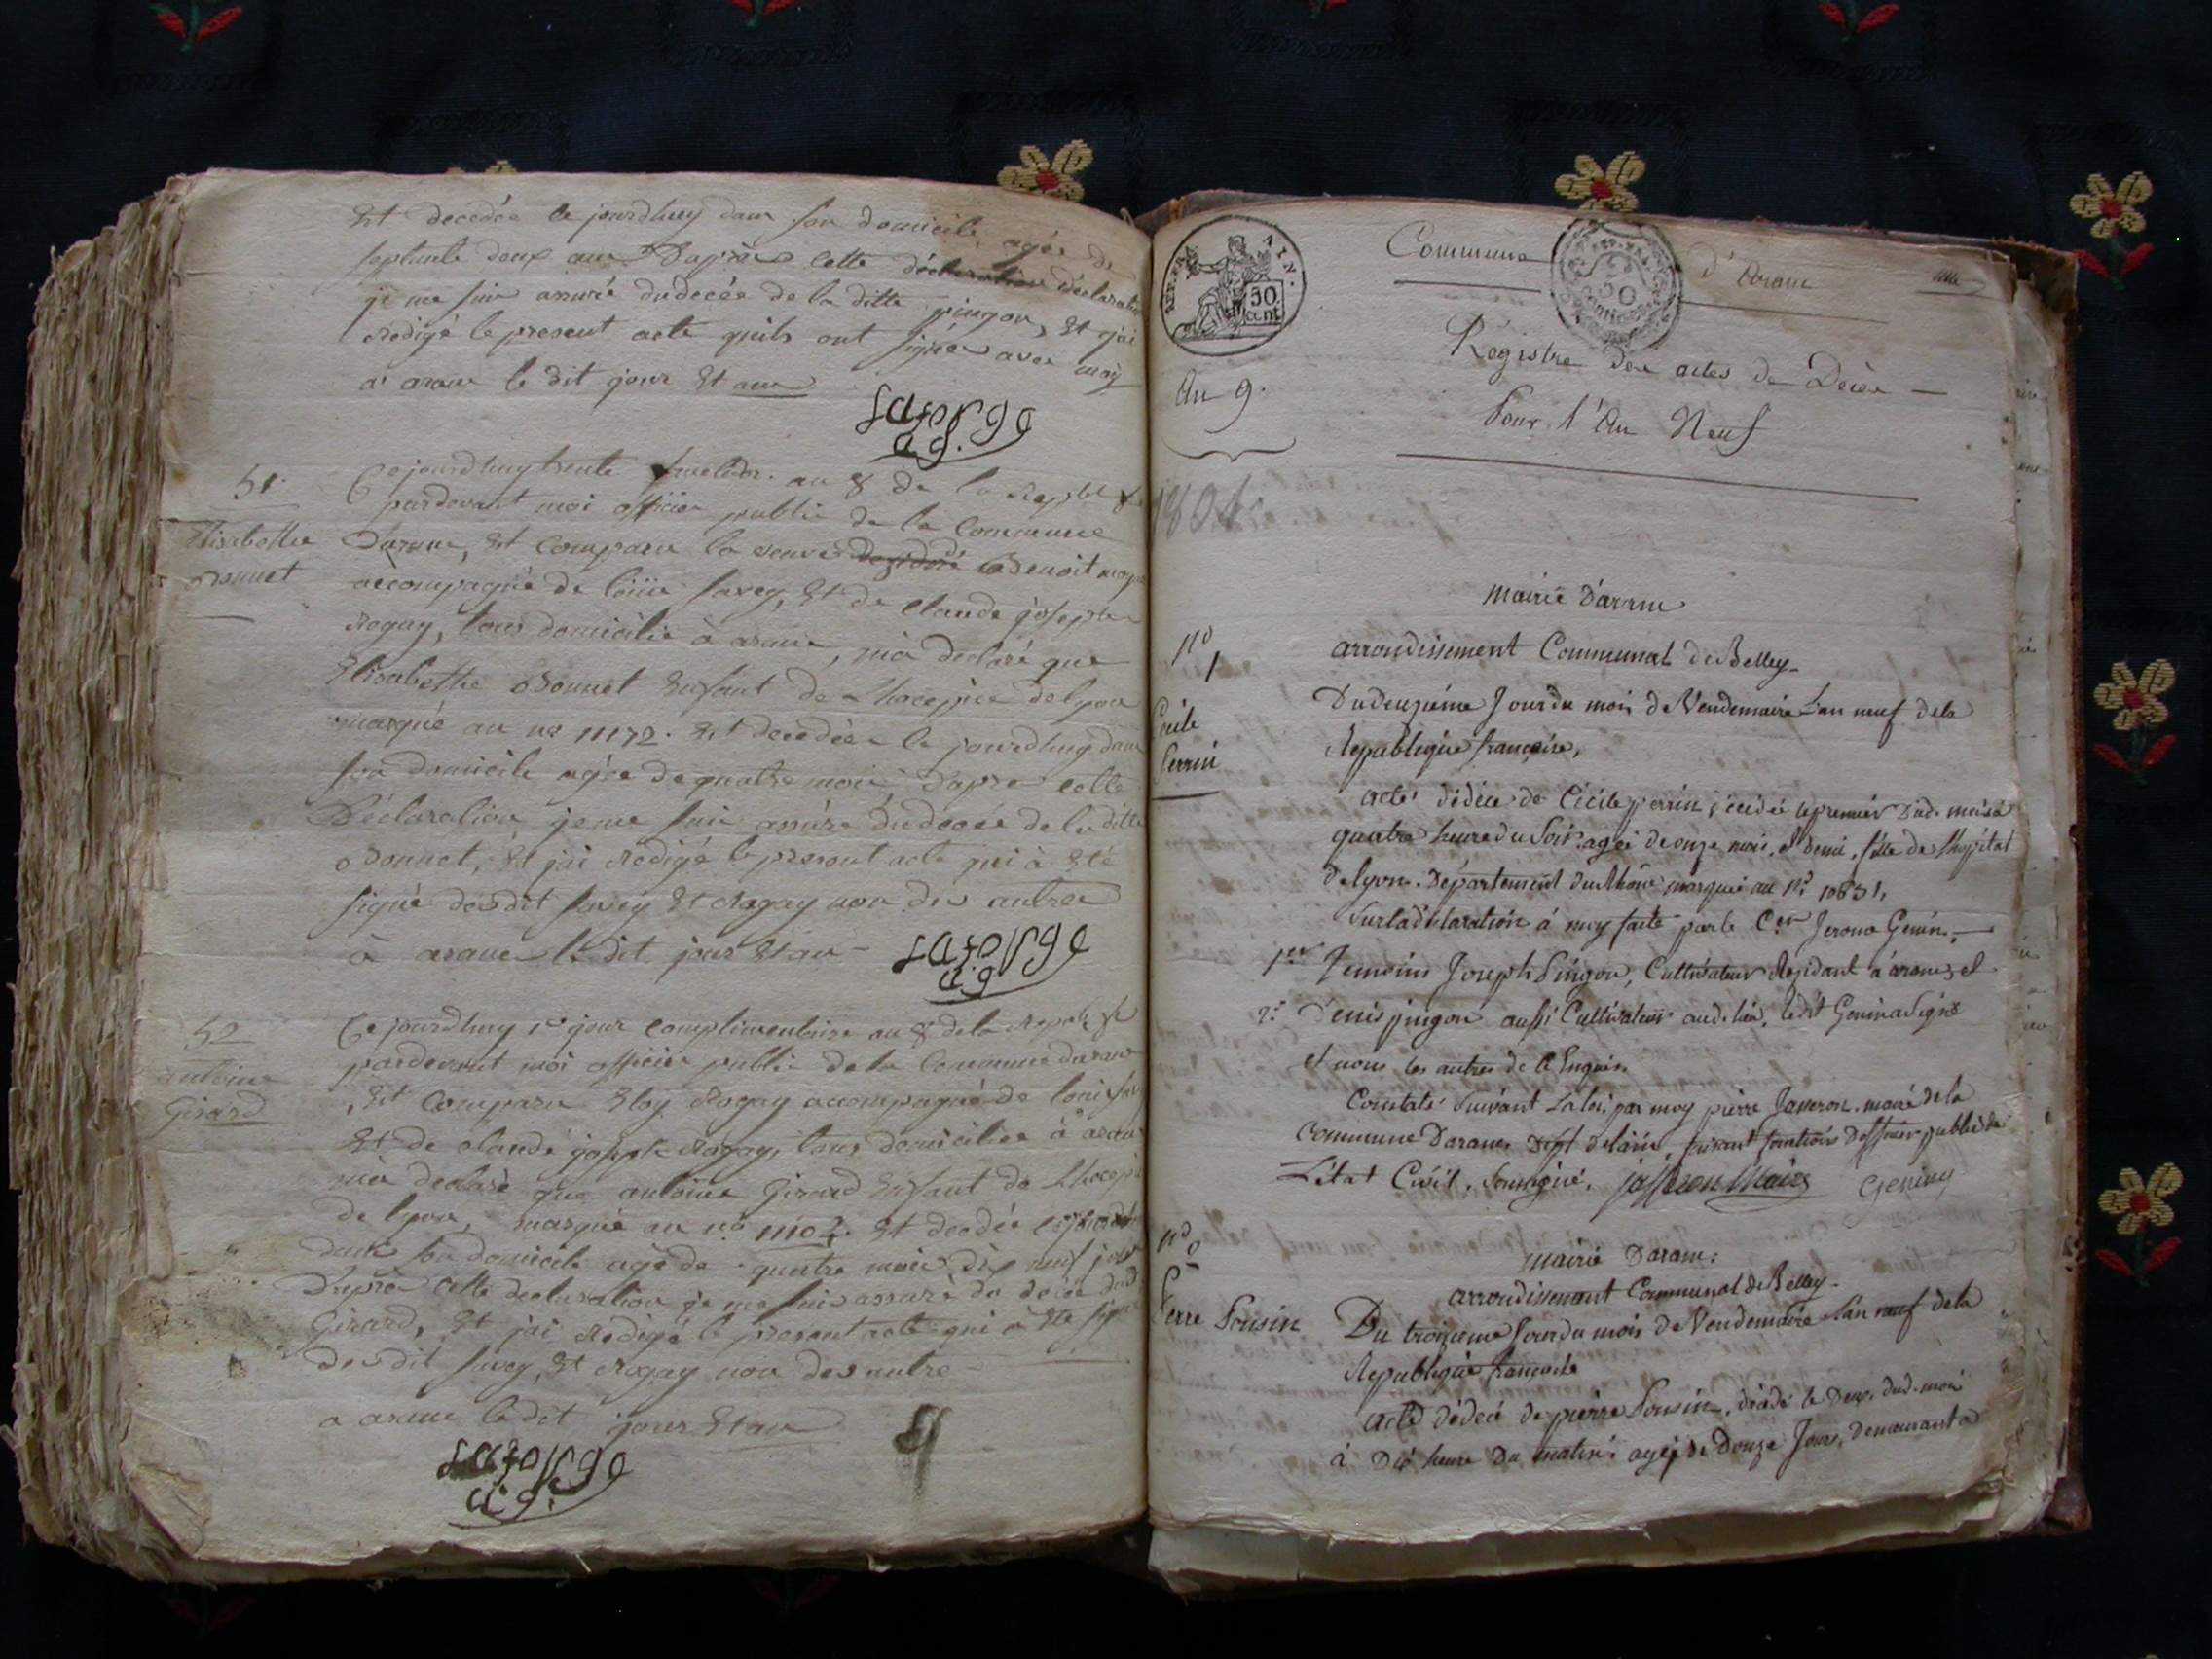 Est decedée le jourdhuy dans son domicile agée de
septante deux ans D'après cette déclaration
je me suis assuré dudecée de la ditte pingon, Et j'ai
Redigé le present acte quils ont signés avec moy
a arane le dit jour Et an
51.
Elisabethe
Bonnet
Ce jourdhuy trente fructidor. an 8 de la Repbl fr
pardevant moi officier public de la Commune
Darane, Est Comparu la veuve Benoit
accompagné de louis savey, Et de Claude joseph
Rogay, tous domicilié à arane, m'a declaré que
Elisabethe Bonnet Enfant de Lhocepice de lyon
marqué au no 11172. Est decedée le jourdhuy dans
son domicile agée de quatre mois, D'apre cette
Déclaration je me suis assuré dudecée de la ditte
Bonnet, Et j'ai Redigé le present acte qui à Eté
signé desdit savey Et Rogay non des autres
à arane le dit jour Et an
52
antoine
Girard
Ce jourdhuy 1er jour complimentaire an 8 de la Repub fr
pardevant moi officier public de la Commune darane
, Est Comparu Eloy Rogay accompagné de louis
Et de claude joseph Rogay, tous domicilier à arane
m'a declaré que antoine Girard Enfant de Lhocepice
de lyon, marqué au no 11102. Est decedée
dans son domicile agé de quatre mois dix neuf jours
D'après cette declaration je me suis assuré du decée dud
Girard, Et j'ai Redigé le present acte qui à Eté signé
desdit savey, Et Rogay non des autre
a arane le dit jour Et an
REP. FRA. AIN.
50
cent
Commune d'Arane
Régistre des actes de Décès
Pour l'An Neuf
An 9.
mairie D'arane
no 1
arrondissement Communal de Belley
Cécile
Perrin
Du deuxiéme Jour du mois de Vendemaire L'an neuf de la
Republique française,
acte dédéce de Cécile perrin décédée le premier Dud. mois à
quatre heure du Soir, agée de onze mois, et demi, fille des Lhopital
de lyon. Département du Rhône marquée au no 10831,
Sur la déclaration à moy faite par le Cen Jerome Genin,
1er Temoins Joseph Pingon, Cultivateur Rezidant à arane, et
2e Denis pingon aussi Cultivateur aud. lieu, ledit Genin a Signé
et nous les autres de ce Enquis.
Constaté Suivant La loi, par moy pierre Jasseron. maire de la
Commune Darane, Dept de lain, faisant fonctions Dofficier public de
L'état Civil, Soussigné, jasseron Maire Genin
no 2
mairie Darane:
arrondissement Communal de Belley
Pierre Ponsin
Du troizieme Jour du mois de Vendemaire L'an neuf de la
Republique francaise
acte dédecé de pierre Ponsin, décédé le Deux dud. mois
à Dix heure Du matin, agé de Douze Jours, demeurant à